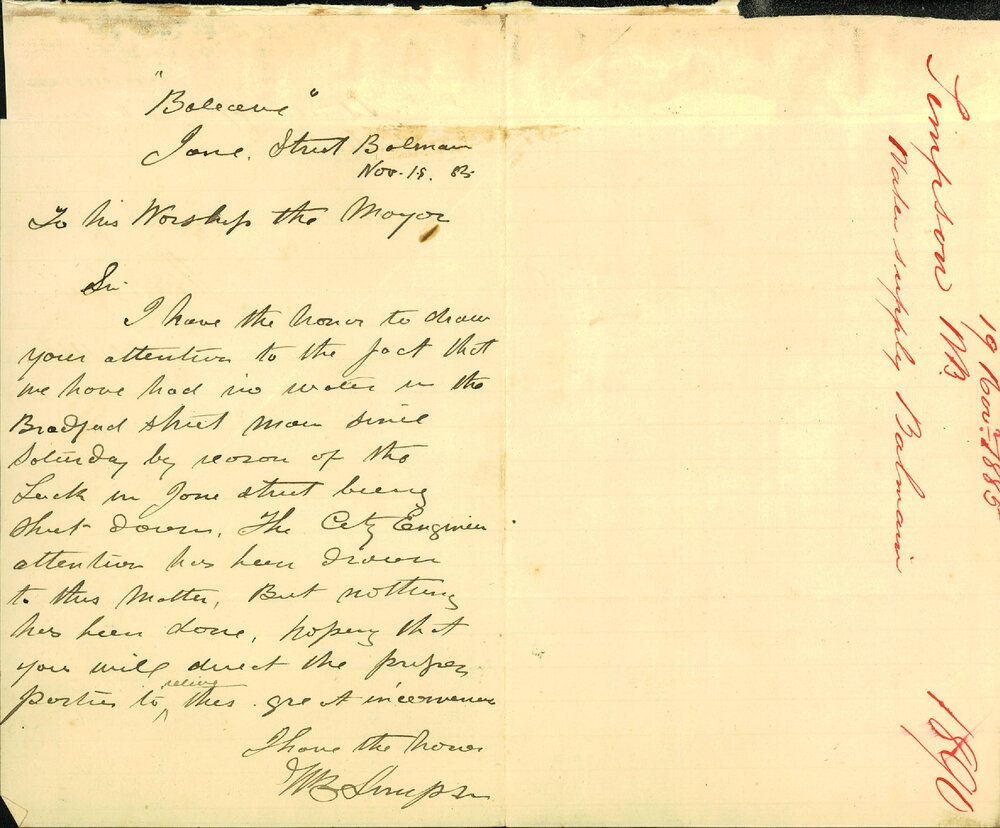 "Boleare"
Jane. Street Balmain
Nov. 19. 85
To his Worship the Mayor
Sir
I have the honor to draw
your attention to the fact that
we have had no water in the
Bradford street main since
Saturday by reason of the
Luck in Jane street being
shut down, The City Engineer
attention has been drawn
to this Matter, But nothing
has been done, hoping that
you will direct the proper
parties to relieve this great inconvenience
I have the honor
WB Simpson
Simpson WB
Water supply Balmain
19 Novr. 1885
1860